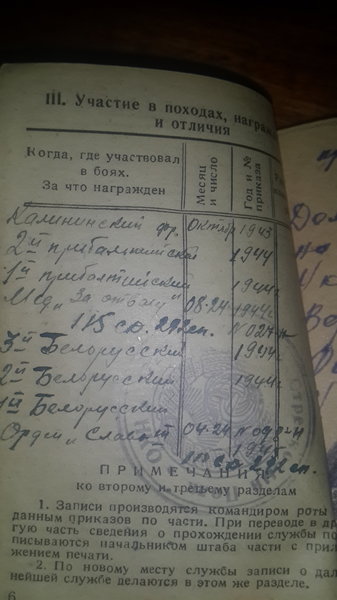 III. Участие в походах, награ
и отличия
Когда, где участвовал
в боях.
За что награжден
Месяц
и число
Год и №
приказа
Калининский фр. Октяр 1943
2й прибалтийской 1944
1й прибалтийский 1944г
Мед „За отвагу" 08.24 1944г
115 сд. 292 сп. N 027-н
3й Белорусский 1944
2й Белорусский 1944г
1й Белорусский
Орден „Славы" 04.24 N 098-н
1945
115 сд 292 сп.
ПРИМЕЧАНИЯ
ко второму и третьему разделам
1. Записи производятся командиром роты
данным приказов по части. При переводе в др
гую часть сведения о прохождении службы по
писываются начальником штаба части с прил
жением печати.
2. По новому месту службы записи о дал
нейшей службе делаются в этом же разделе.
6